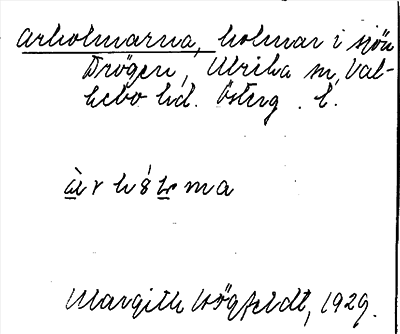 Arholmarna, holmar i sjön
Drögen, Ulrika sn, Val-
kebo hd. Österg. l.
àrhólma
Margith Högfeldt, 1929.